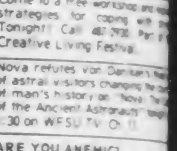 Come to a free workshop on
strategies for coping with
Tonight! Call 487.2930. Part of
Creative Living Festival
Nova refutes von Daniken's
of astral visitors changing the
of man's history on "Nova
of the Ancient Astronauts"
:30 on WFSU TV Ch 11
ARE YOU ANEMIC?